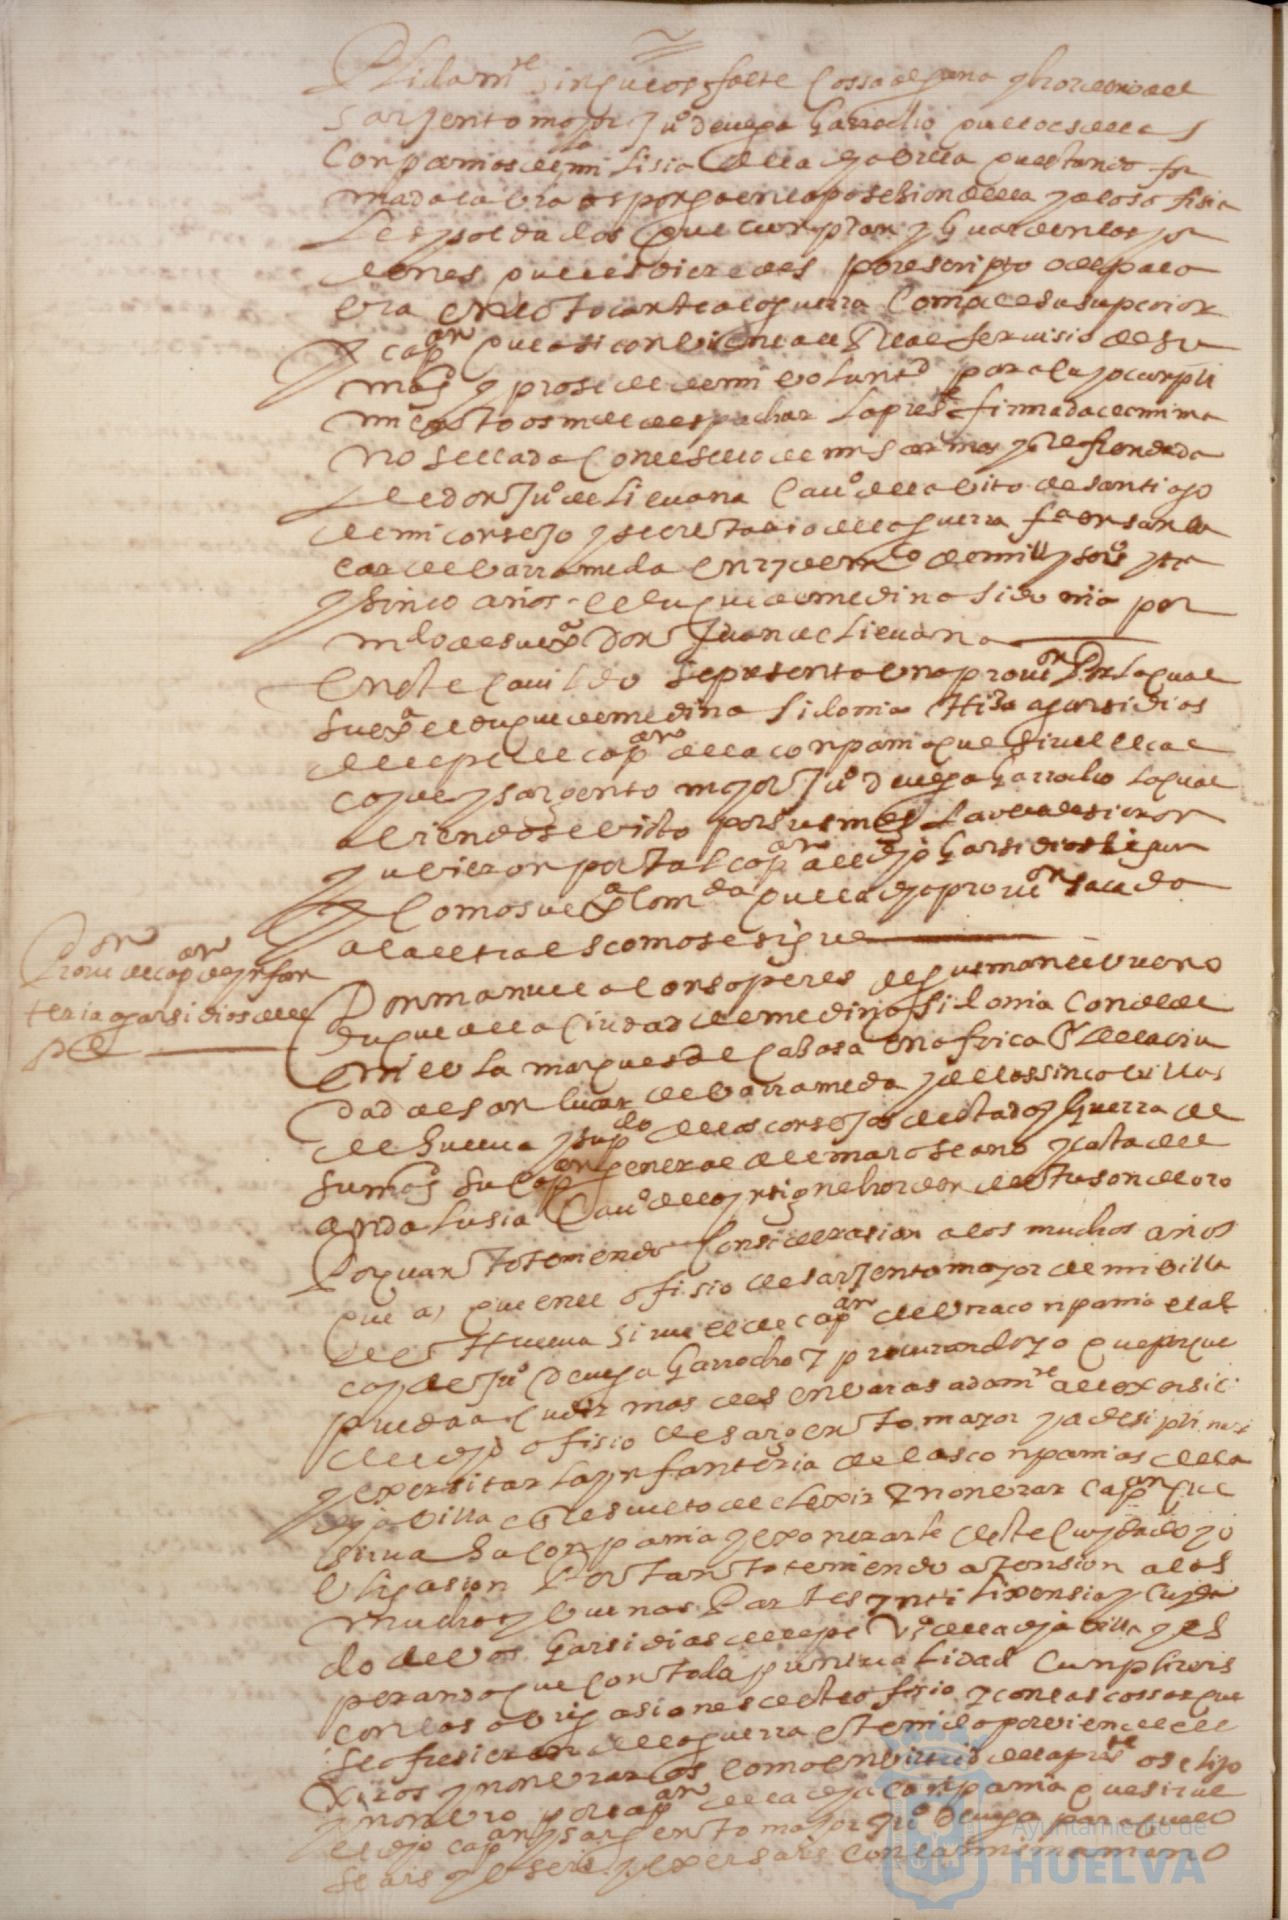 plidamte sin que os falte cossa alguna y hordeno al
sarjento mayor Juº de vega Garrocho que lo es de las
conpamias de mi lisia de la dja villa questando for
mada la vra os ponga en la posesion della y a los ofisia
les y soldados que cunplan y Guarden las hor
denes que les dieredes por escripto o de pala
bra en lo tocante a la guerra como a su superior
y capan que asi conbiene al Real serbisio de su
magd y prosede de mi voluntd para cuyo cunpli
miento os mde despachar la preste firmada de mi ma
no sellada con el sello de mis armas y Refrendada
de don Juº de Lievana cauº del abito de santiago
de mi consejo y secretario de la guerra fa en san lu
car de barrameda en 27 de mço de mill y sos y tra
y sinco años - el duque de medina sidonia por
mdo de su exª Don Juan de Lievana
En este cauildo se presento una prouon Por la qual
su exª el duque de medina sidonia Hiso a garsi dias
de lepe de capan de la conpamia que sirue el al
cayde y sargento mayor Juº de vega Garrocho la qual
abiendose visto por sus mds la obedesieron
y ubieron por tal capan al djo Garsi dias
y como su exª lomda que la dja prouon sacada
a la letra es como se sigue
Prouon de capan de ynfan
teria a garsi dias de le
pe
Don manuel alonso peres de gusman el bueno
duque de la ciudad de medina sidonia conde de
niebla marques de Casasa en africa Sr de la ciu
dad de san lucar de barrameda y de las sinco villas
de huelua y supdo de los consejos de estado y Guerra de
su magd su capan general del mar oseano y costa del
andalusia Cauº de la ynsigne horden del tuson de oro
Por quanto teniendo consideracion a los muchos años
que a que en el ofisio de sarjento mayor de mi villa
de Huelua sirue el de capan de una conpamia el al
cayde Juº de vega Garrocho y procurando yo que
pueda acudir mas desenbarasadamte al exersisi
del djo ofisio de sargento mayor y a desiplinar
y exersitar la ynfanteria de las conpamias de la
dja villa e Resuelto de elexir y nonbrar capan que
sirua su conpamia y exonerarle deste cuydado y o
bligasion Por tanto teniendo atension a los
muchos y buenas Partes yntilixensia y cuyda
do de vos Garsi dias de lepe Vº de la dja villa y es
perando que con toda puntualidad cunplireis
con las obligasiones deste ofisio y con las cossas que
se ofresieren de la guerra e tenido por bien de ele
xiros y nonbraros como en uirtud de la preste os elijo
y nonbro por capan de la dja conpamia que sirue
el djo capan y sargento mayor Juº de vega para que lo
seais y useis y exersais con la mima mano
Ayuntamiento de
HUELVA